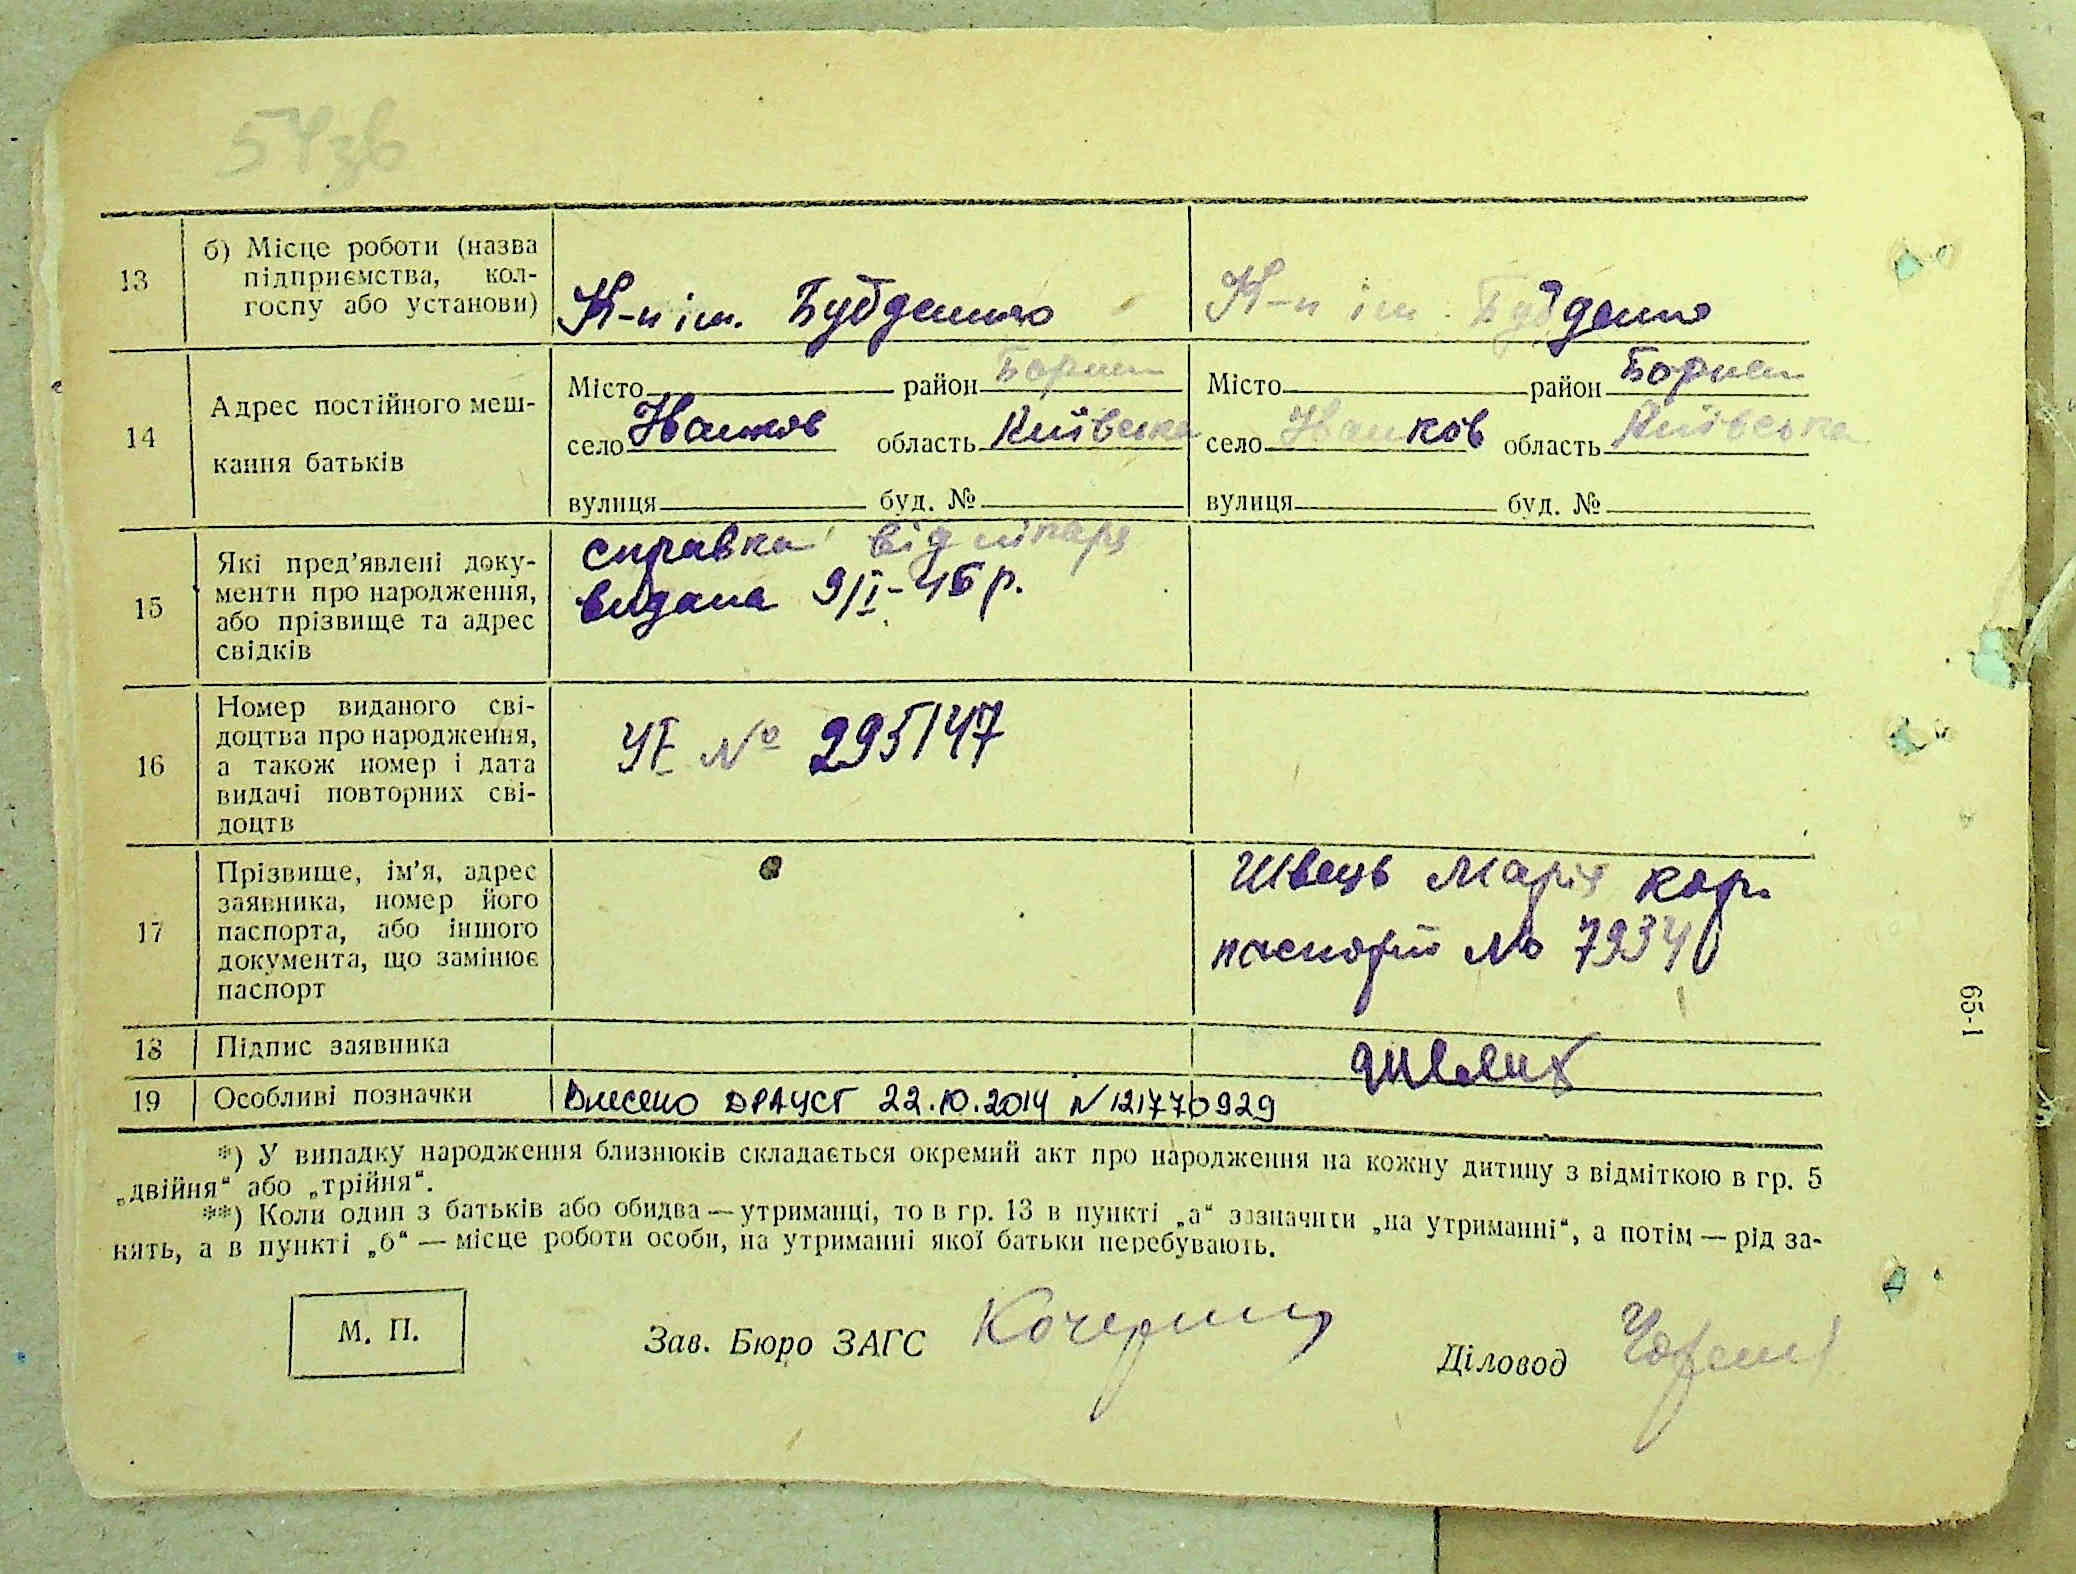 54зв
13
б) Місце роботи (назва
підприємства, кол-
госпу або установи)
К-п ім. Будденого
К-п ім. Будденно
14
Адрес постійного меш-
кання батьків
Місто район Борисп
село Іванков область Київська
вулиця буд. №
Місто район Борисп
село Іванков область Київська
вулиця буд. №
15
Які пред’явлені доку-
менти про народження,
або прізвище та адрес
свідків
справка від лікаря
видана 9/I-46 р.
16
Номер виданого сві-
доцтва про народження,
а також номер і дата
видачі повторних сві-
доцтв
№ 295147
17
Прізвище, ім’я, адрес
заявника, номер його
паспорта, або іншого
документа, що замінює
паспорт
Швець Марія кор.
паспорт № 7934
18
Підпис заявника
19
Особливі позначки
Внесено ДРАЦСГ 22.10.2014 N 121770929
*) У випадку народження близнюків складається окремий акт про народження на кожну дитину з відміткою в гр. 5
„двійня“ або „трійня“.
**) Коли один з батьків або обидва — утриманці, то в гр. 13 в пункті „а“ зазначити „на утриманні“, а потім — рід за-
нять, а в пункті „б“ — місце роботи особи, на утриманні якої батьки перебувають.
М. П.
Зав. Бюро ЗАГС
Діловод
65-1